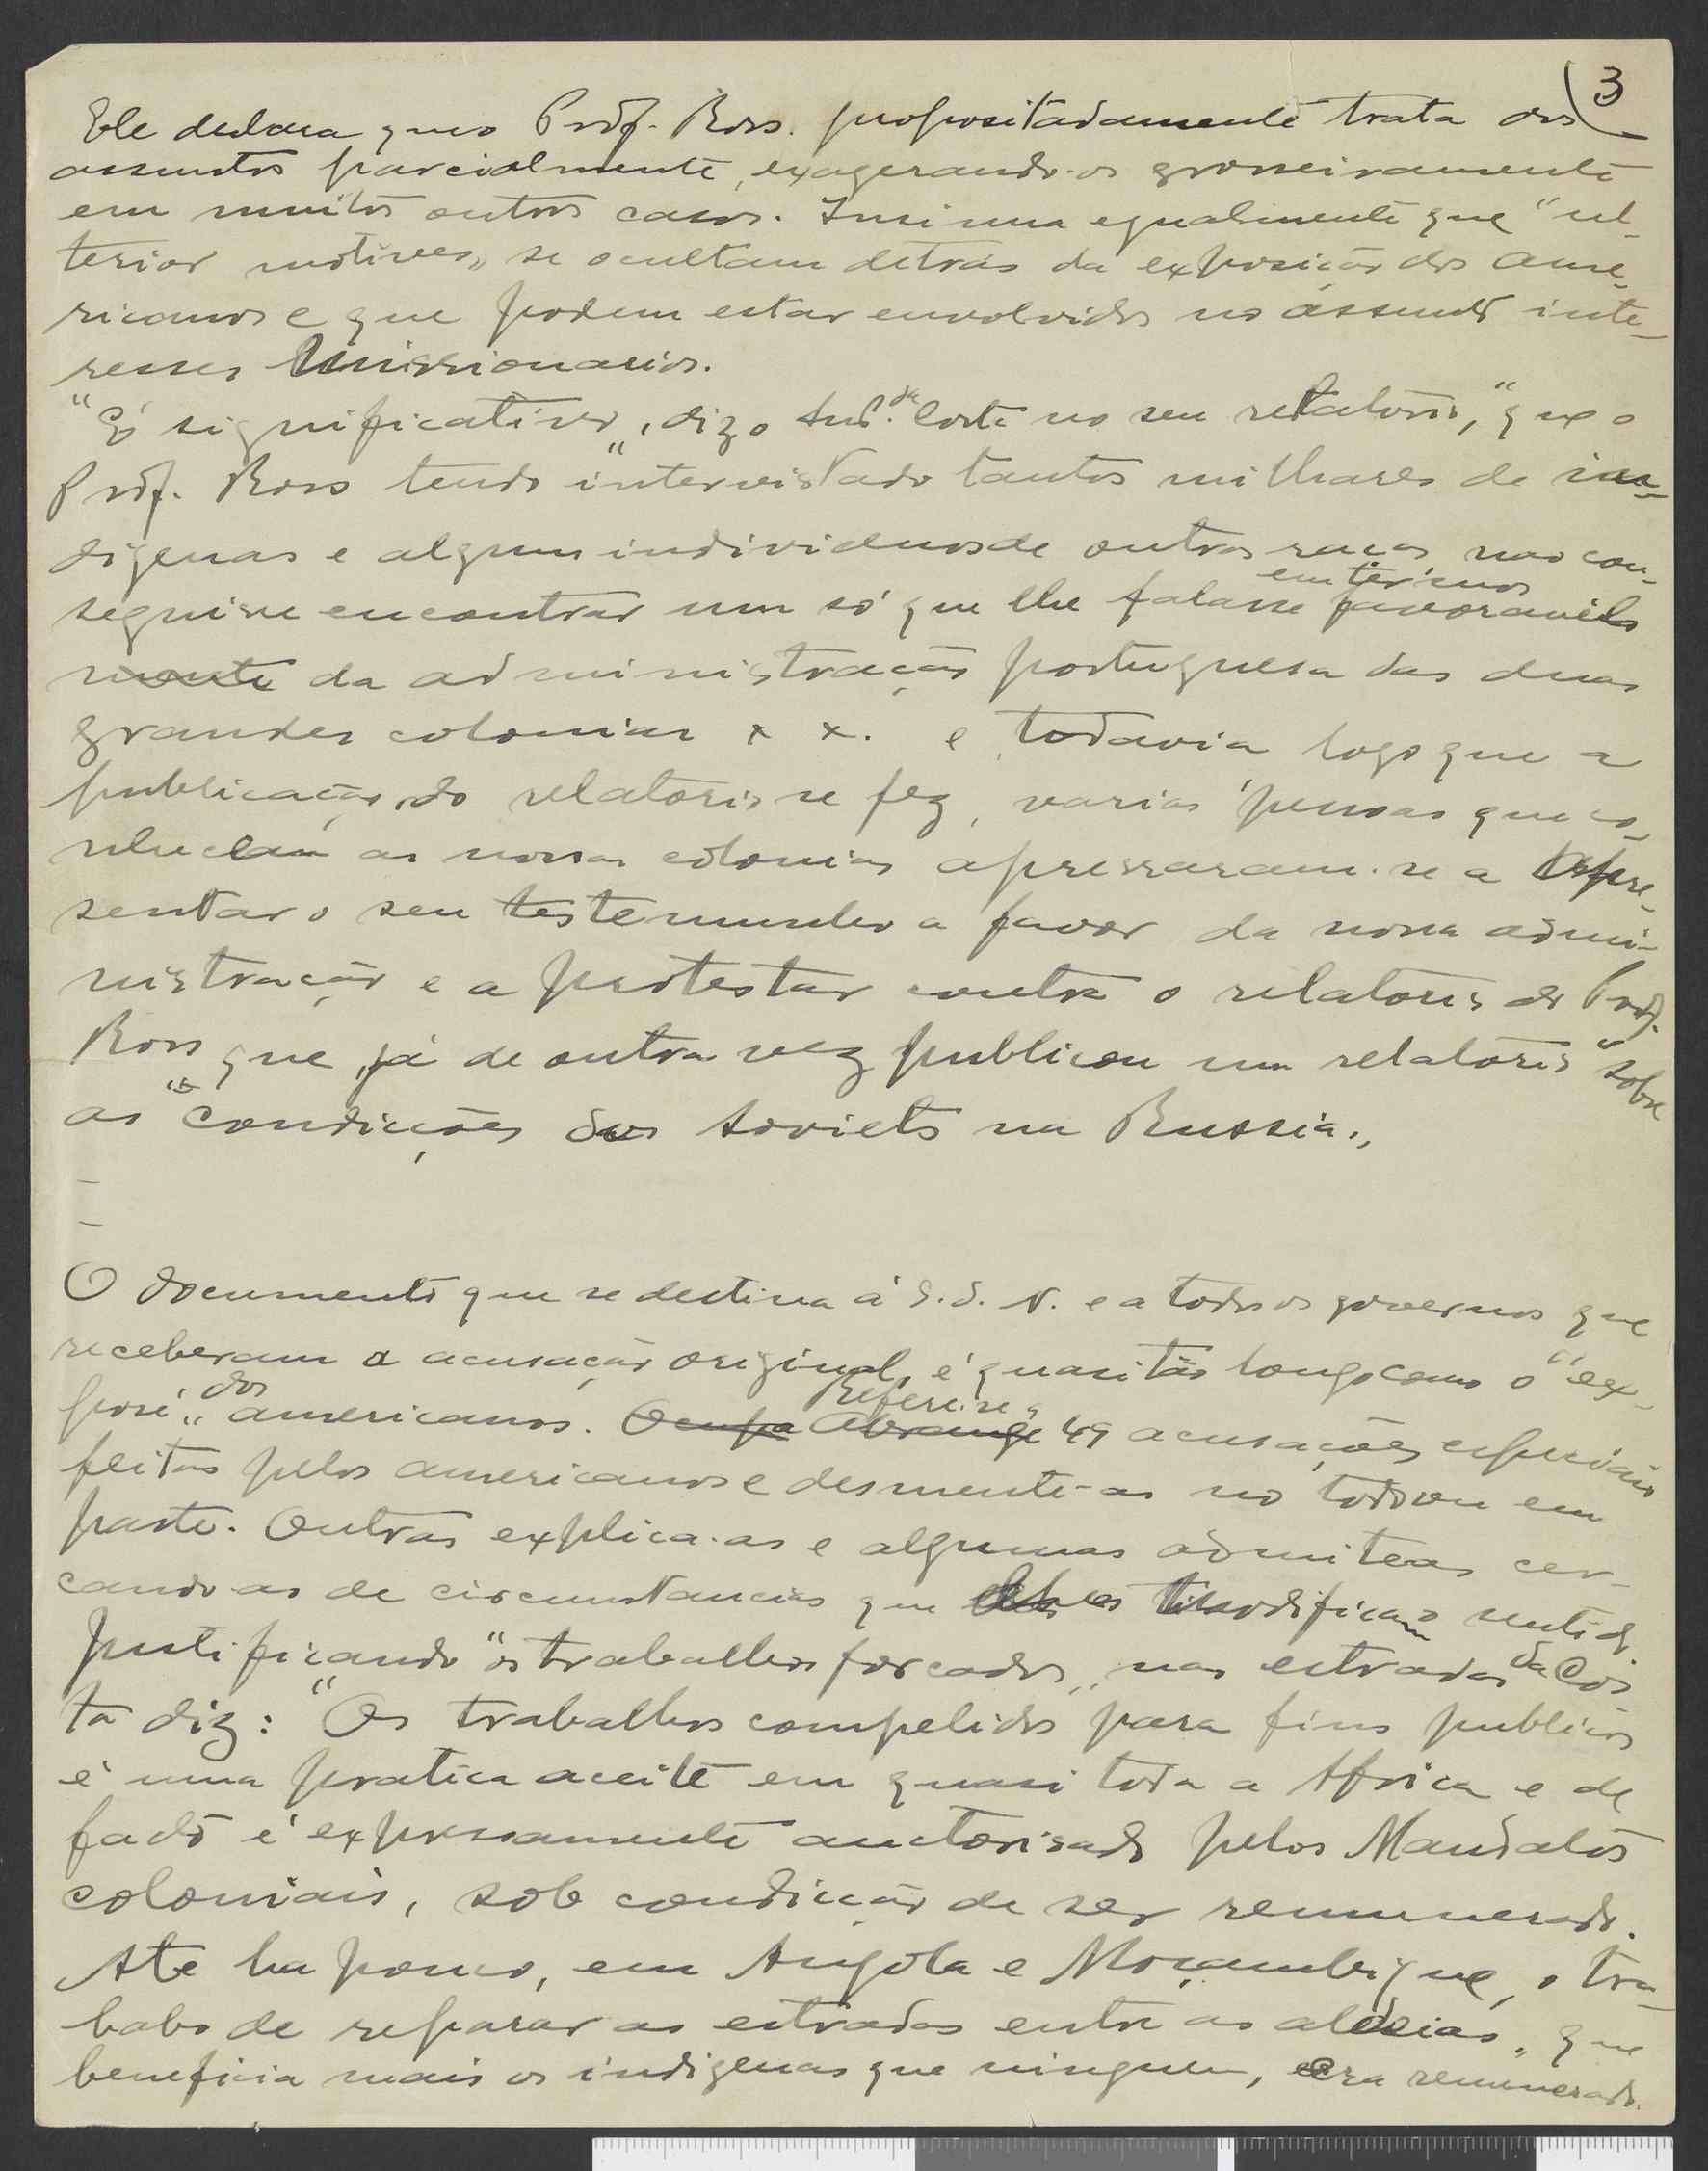 3
Ele declara que o Prof. Ross. propositadamente trata os
assuntos parcialmente, exagerando-os grosseiramente
em muitos outros casos. Insinua egualmente que "ul-
terior motives" se ocultam detrás da exposição dos ame-
ricanos e que podem estar envolvidos no assunto inte-
resses missionarios.
"É significativo", diz o da Costa no seu relatorio, "que o
Prof. Ross tendo "intervistado tantos milhares de in-
digenas e alguns individuos de outras raças não con-
seguisse encontrar um só que lhe falasse em termos favoraveis
mente da administração portuguesa das duas
grandes colonias x x. e todavia logo que a
publicação do relatorio se fez, varias pessoas que co-
nheciam as nossas colonias apressaram-se a apre-
sentar o seu testemunho a favor da nossa admi-
nistração e a protestar contra o relatorio do Prof.
Ross que já de outra vez publicou um relatorio "sobre
as "condições dos soviets na Russia."
O documento que se destina á S. d. N. e a todos os governos que
receberam a acusação original, é quasi tão longo como o "ex-
posé" dos americanos. Ocupa Abrange Refere-se a 49 acusações especiais
feitas pelos americanos e desmente-as no todo ou em
parte. Outras explica-as e algumas admite-as cer-
cando-as de circunstancias que modificam o sentido.
Justificando "os trabalhos forçados" nas estradas da Cos
ta diz: "Os trabalhos compelidos para fins publicos
é uma pratica aceite em quasi toda a Africa e de
facto é expressamente auctorisado pelos Mandatos
coloniais, sob condicção de ser remunerado.
Até ha pouco, em Angola e Moçambique, o tra-
balho de reparar as estradas entre as aldeias, que
beneficia mais os indigenas que ninguem, era remunerado.